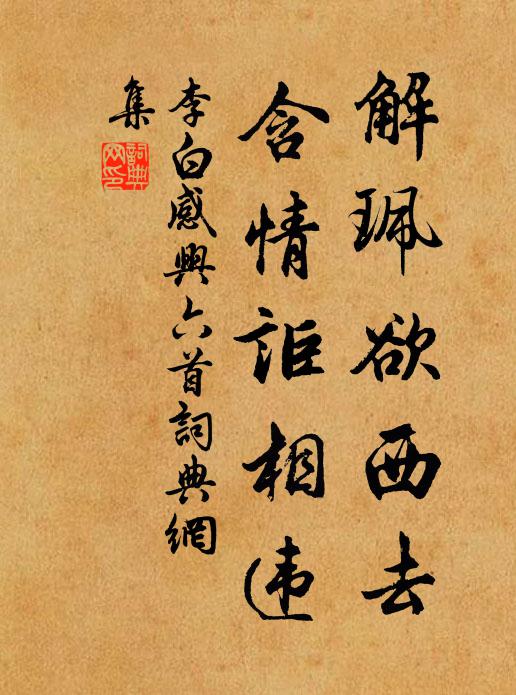 解珮欲西去
含情詎相违
李白感興六首詞典網
集
詞典网印